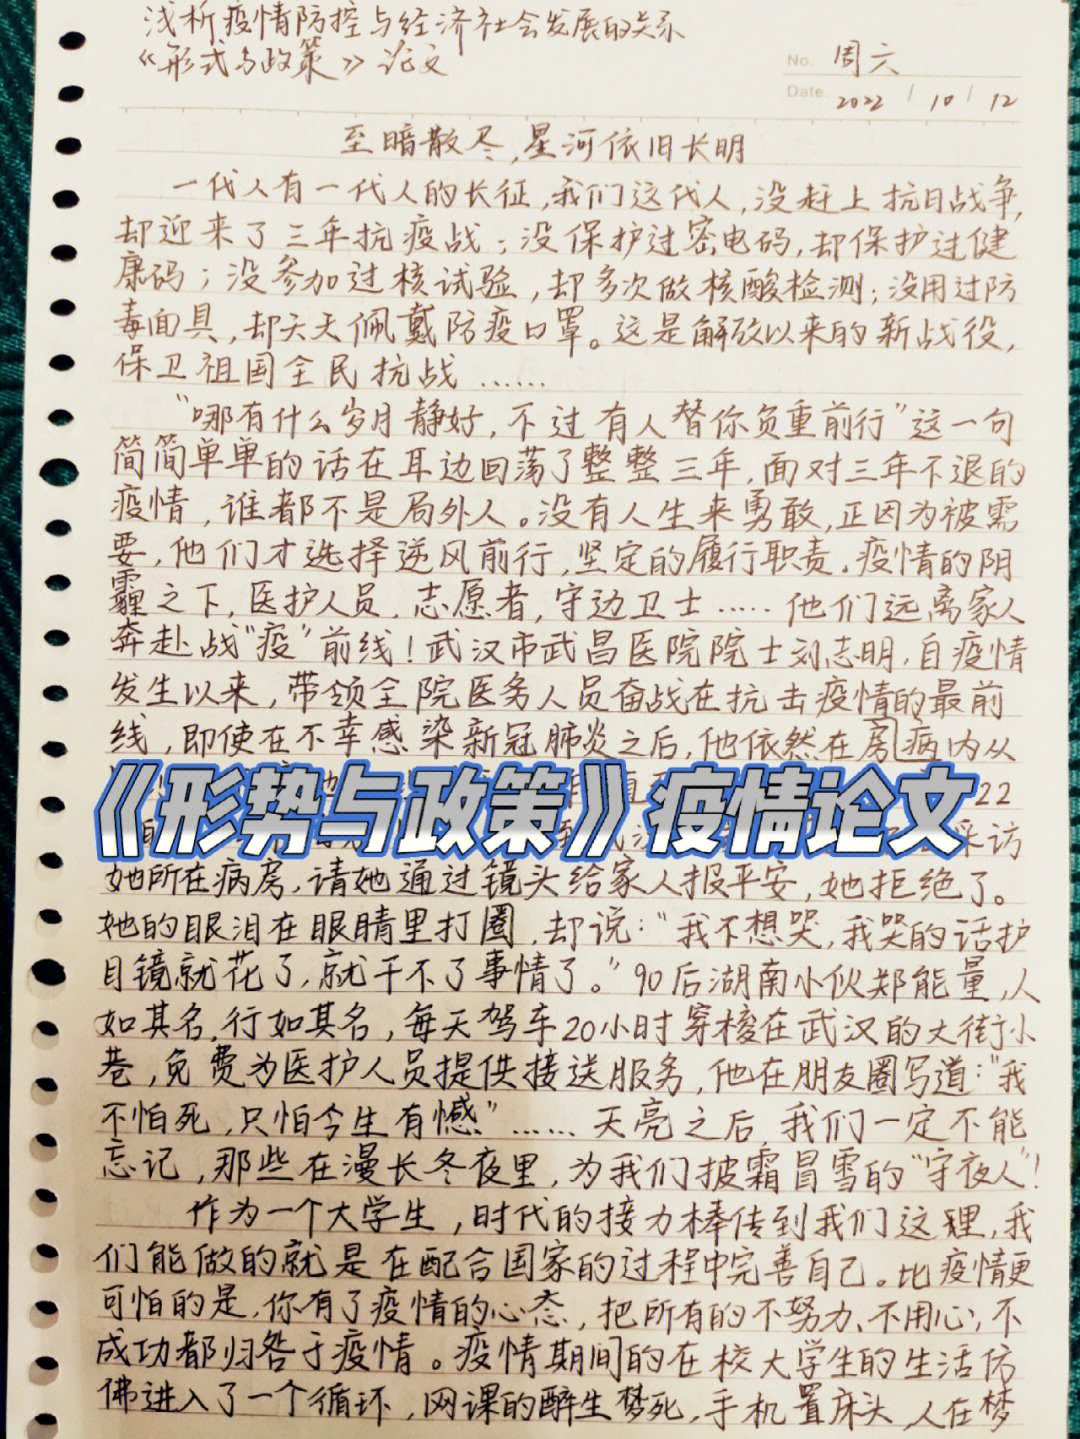 浅析疫情防控与经济社会发展的关系
《形式与政策》论文
No. 周六
Date. 2022 / 10 / 12
至暗散尽,星河依旧长明
一代人有一代人的长征,我们这代人,没赶上抗日战争,
却迎来了三年抗疫战;没保护过密电码,却保护过健
康码;没参加过核试验,却多次做核酸检测;没用过防
毒面具,却天天佩戴防疫口罩。这是解放以来的新战役,
保卫祖国全民抗战……
“哪有什么岁月静好,不过有人替你负重前行”这一句
简简单单的话在耳边回荡了整整三年,面对三年不退的
疫情,谁都不是局外人。没有人生来勇敢,正因为被需
要,他们才选择逆风前行,坚定的履行职责。疫情的阴
霾之下,医护人员,志愿者,守边卫士……他们远离家人
奔赴战“疫”前线!武汉市武昌医院院士刘志明,自疫情
发生以来,带领全院医务人员奋战在抗击疫情的最前
线,即使在不幸感染新冠肺炎之后,他依然在房病内从
22
《形势与政策》疫情论文
采访
她所在病房,请她通过镜头给家人报平安,她拒绝了。
她的眼泪在眼睛里打圈,却说:“我不想哭,我哭的话护
目镜就花了,就干不了事情了。”90后湖南小伙郑能量,人
如其名,行如其名,每天驾车20小时穿梭在武汉的大街小
巷,免费为医护人员提供接送服务,他在朋友圈写道:“我
不怕死,只怕今生有憾”……天亮之后,我们一定不能
忘记,那些在漫长冬夜里,为我们披霜冒雪的“守夜人”!
作为一个大学生,时代的接力棒传到我们这理,我
们能做的就是在配合国家的过程中完善自己。比疫情更
可怕的是,你有了疫情的心态,把所有的不努力、不用心、不
成功都归咎于疫情。疫情期间的在校大学生的生活仿
佛进入了一个循环,网课的醉生梦死,手机置床头,人在梦